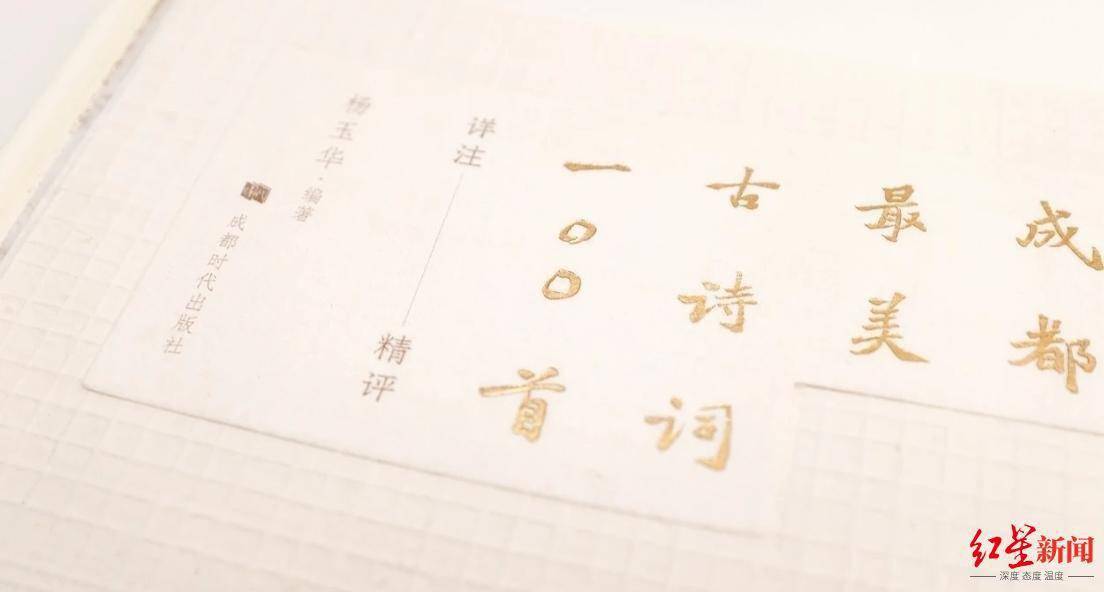 成都
最美
古诗词
一〇〇首
详注——精评
杨玉华·编著
成都时代出版社
红星新闻
深度 态度 温度